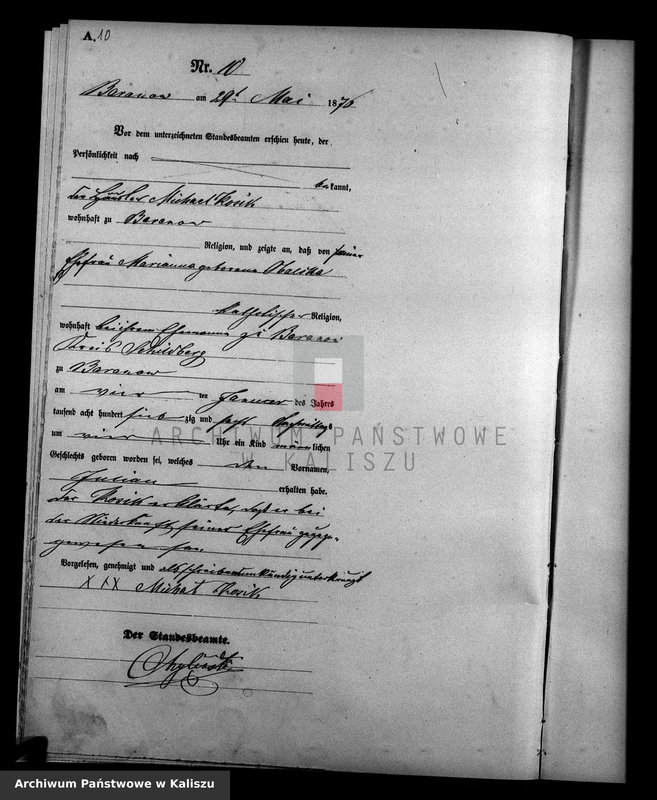 A. 10
Nr. 10
Baranow am 29t Mai 1876
Vor dem unterzeichneten Standesbeamten erschien heute, der
Persönlichkeit nach
bekannt,
der Häusler Michael Kosik
wohnhaft zu Baranow
Religion, und zeigte an, daß von seiner
Ehefrau Marianna geborene
katholischer Religion,
wohnhaft bei ihrem Ehemanne zu Baranow
Kreis Schildberg
zu Baranow
am vier ten Januar des Jahres
tausend acht hundert sieb zig und sechs Nachmittags
um vier Uhr ein Kind männlichen
Geschlechts geboren worden sei, welches den Vornamen,
Julian
erhalten habe.
Der Kosik erklärte, daß er bei
der Niederkunft seiner Ehefrau zugegen
gewesen sei.
Vorgelesen, genehmigt und als schreibensunkundig unterkreuzt
XXX Michał Kosik
Der Standesbeamte.
ARCHIWUM PAŃSTWOWE
W KALISZU
Archiwum Państwowe w Kaliszu